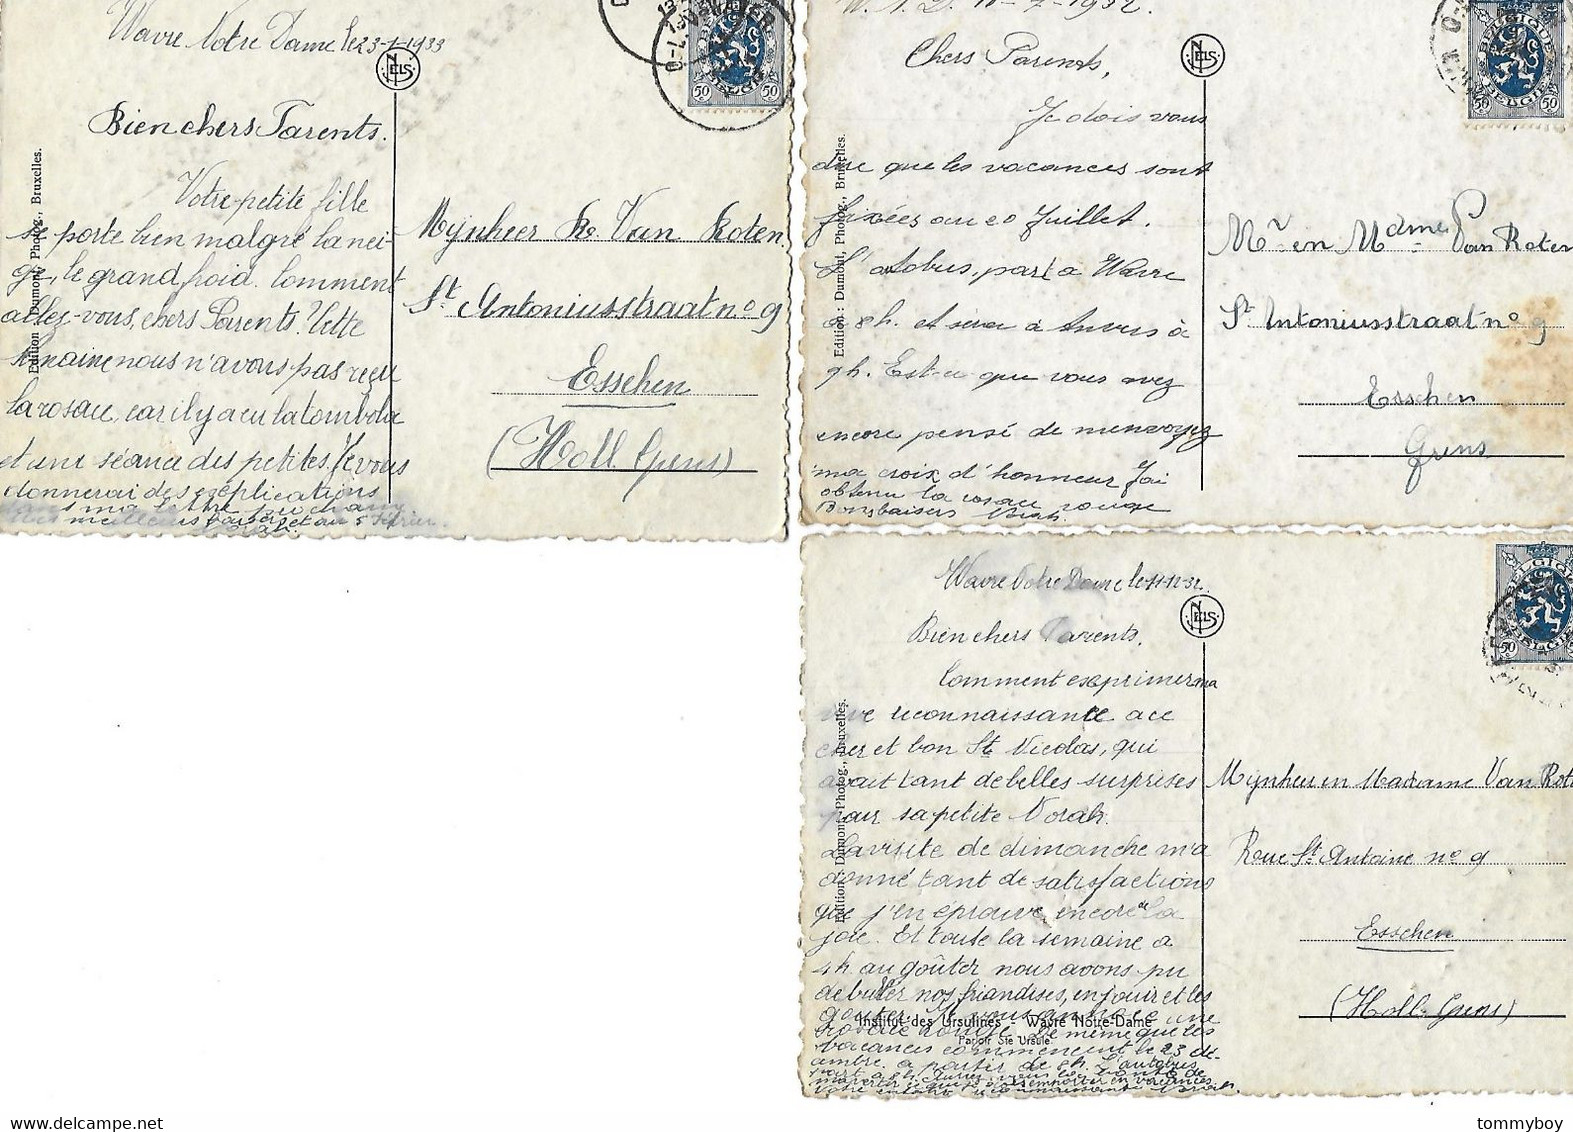 Wavre Notre Dame le 23-1-1933
Bien chers Parents.
Votre petite fille
se porte bien malgré la nei-
ge, le grand froid. Comment
allez-vous, chers Parents? Cette
semaine nous n'avons pas reçu
la rosace, car il y a eu la tombola
et une séance des petites. Je vous
donnerai des explications
dans ma lettre prochain
meilleurs baisers et au 5 Février.
NELS
Edition: Dumont, Photog., Bruxelles.
BELGIQUE
BELGIE
50 50
Mijnheer Van Roten
St Antoniusstraat no 9
Esschen
(Holl Grens)
W. N. D. 11-7-1932
Chers Parents,
Je dois vous
dire que les vacances sont
fixées au 20 Juillet.
L'atobus, part a Wavre
a 8h. et sera à Anvers à
9h. Est-ce que vous avez
encore pensé de m'envoyez
ma croix d'honneur J'ai
obtenu la rosace rouge
Bons baisers Norah.
NELS
Edition: Dumont, Photog., Bruxelles.
BELGIQUE
BELGIE
50 50
Mr en Mdame Van Roten
St Antoniusstraat no 9
Esschen
Grens
Wavre Notre Dame le 11-12-32.
Bien chers Parents.
Comment exprimer ma
vive reconnaissance a ce
cher et bon St Nicolas, qui
avait tant de belles surprises
pour sa petite Norah.
La visite de dimanche m'a
donné tant de satisfactions
que j'en éprouve encore de la
joie. Et toute la semaine a
4h au goûter nous avons pu
debuller nos friandises, en jouir et les
gouter. Je vous annonce une
rosace rouge. De même que les
vacances commencent le 23 dé-
cembre a partir de 8h. L'autobus
NELS
Edition: Dumont, Photog., Bruxelles.
Institut des Ursulines - Wavre Notre-Dame
Parloir Ste Ursule
BELGIQUE
BELGIE
50
Mijnheer en Madame Van Rote
Rue St Antoine no 9
Esschen
(Holl. Grens)
tommyboy